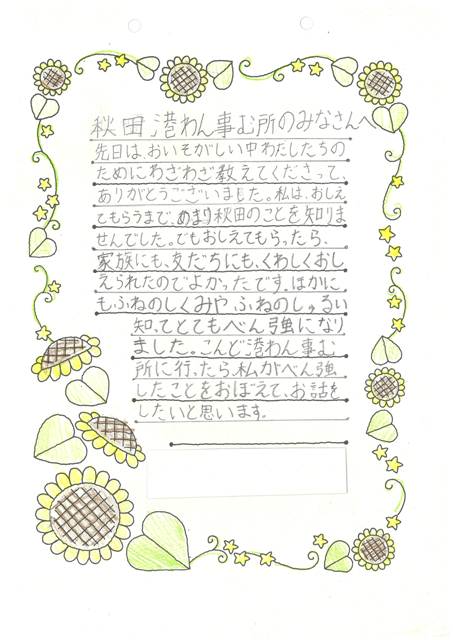 秋田港わん事む所のみなさんへ
先日は、おいそがしい中わたしたちの
ためにわざわざ教えてくださって、
ありがとうございました。私は、おしえ
てもらうまで、あまり秋田のことを知りま
せんでした。でもおしえてもらったら、
家族にも、友だちにも、くわしくおし
えられたのでよかったです。ほかに
も、ふねのしくみや、ふねのしゅるい
知ってとてもべん強になり
ました。こんど港わん事む
所に行ったら、私がべん強
したことをおぼえて、お話を
したいと思います。